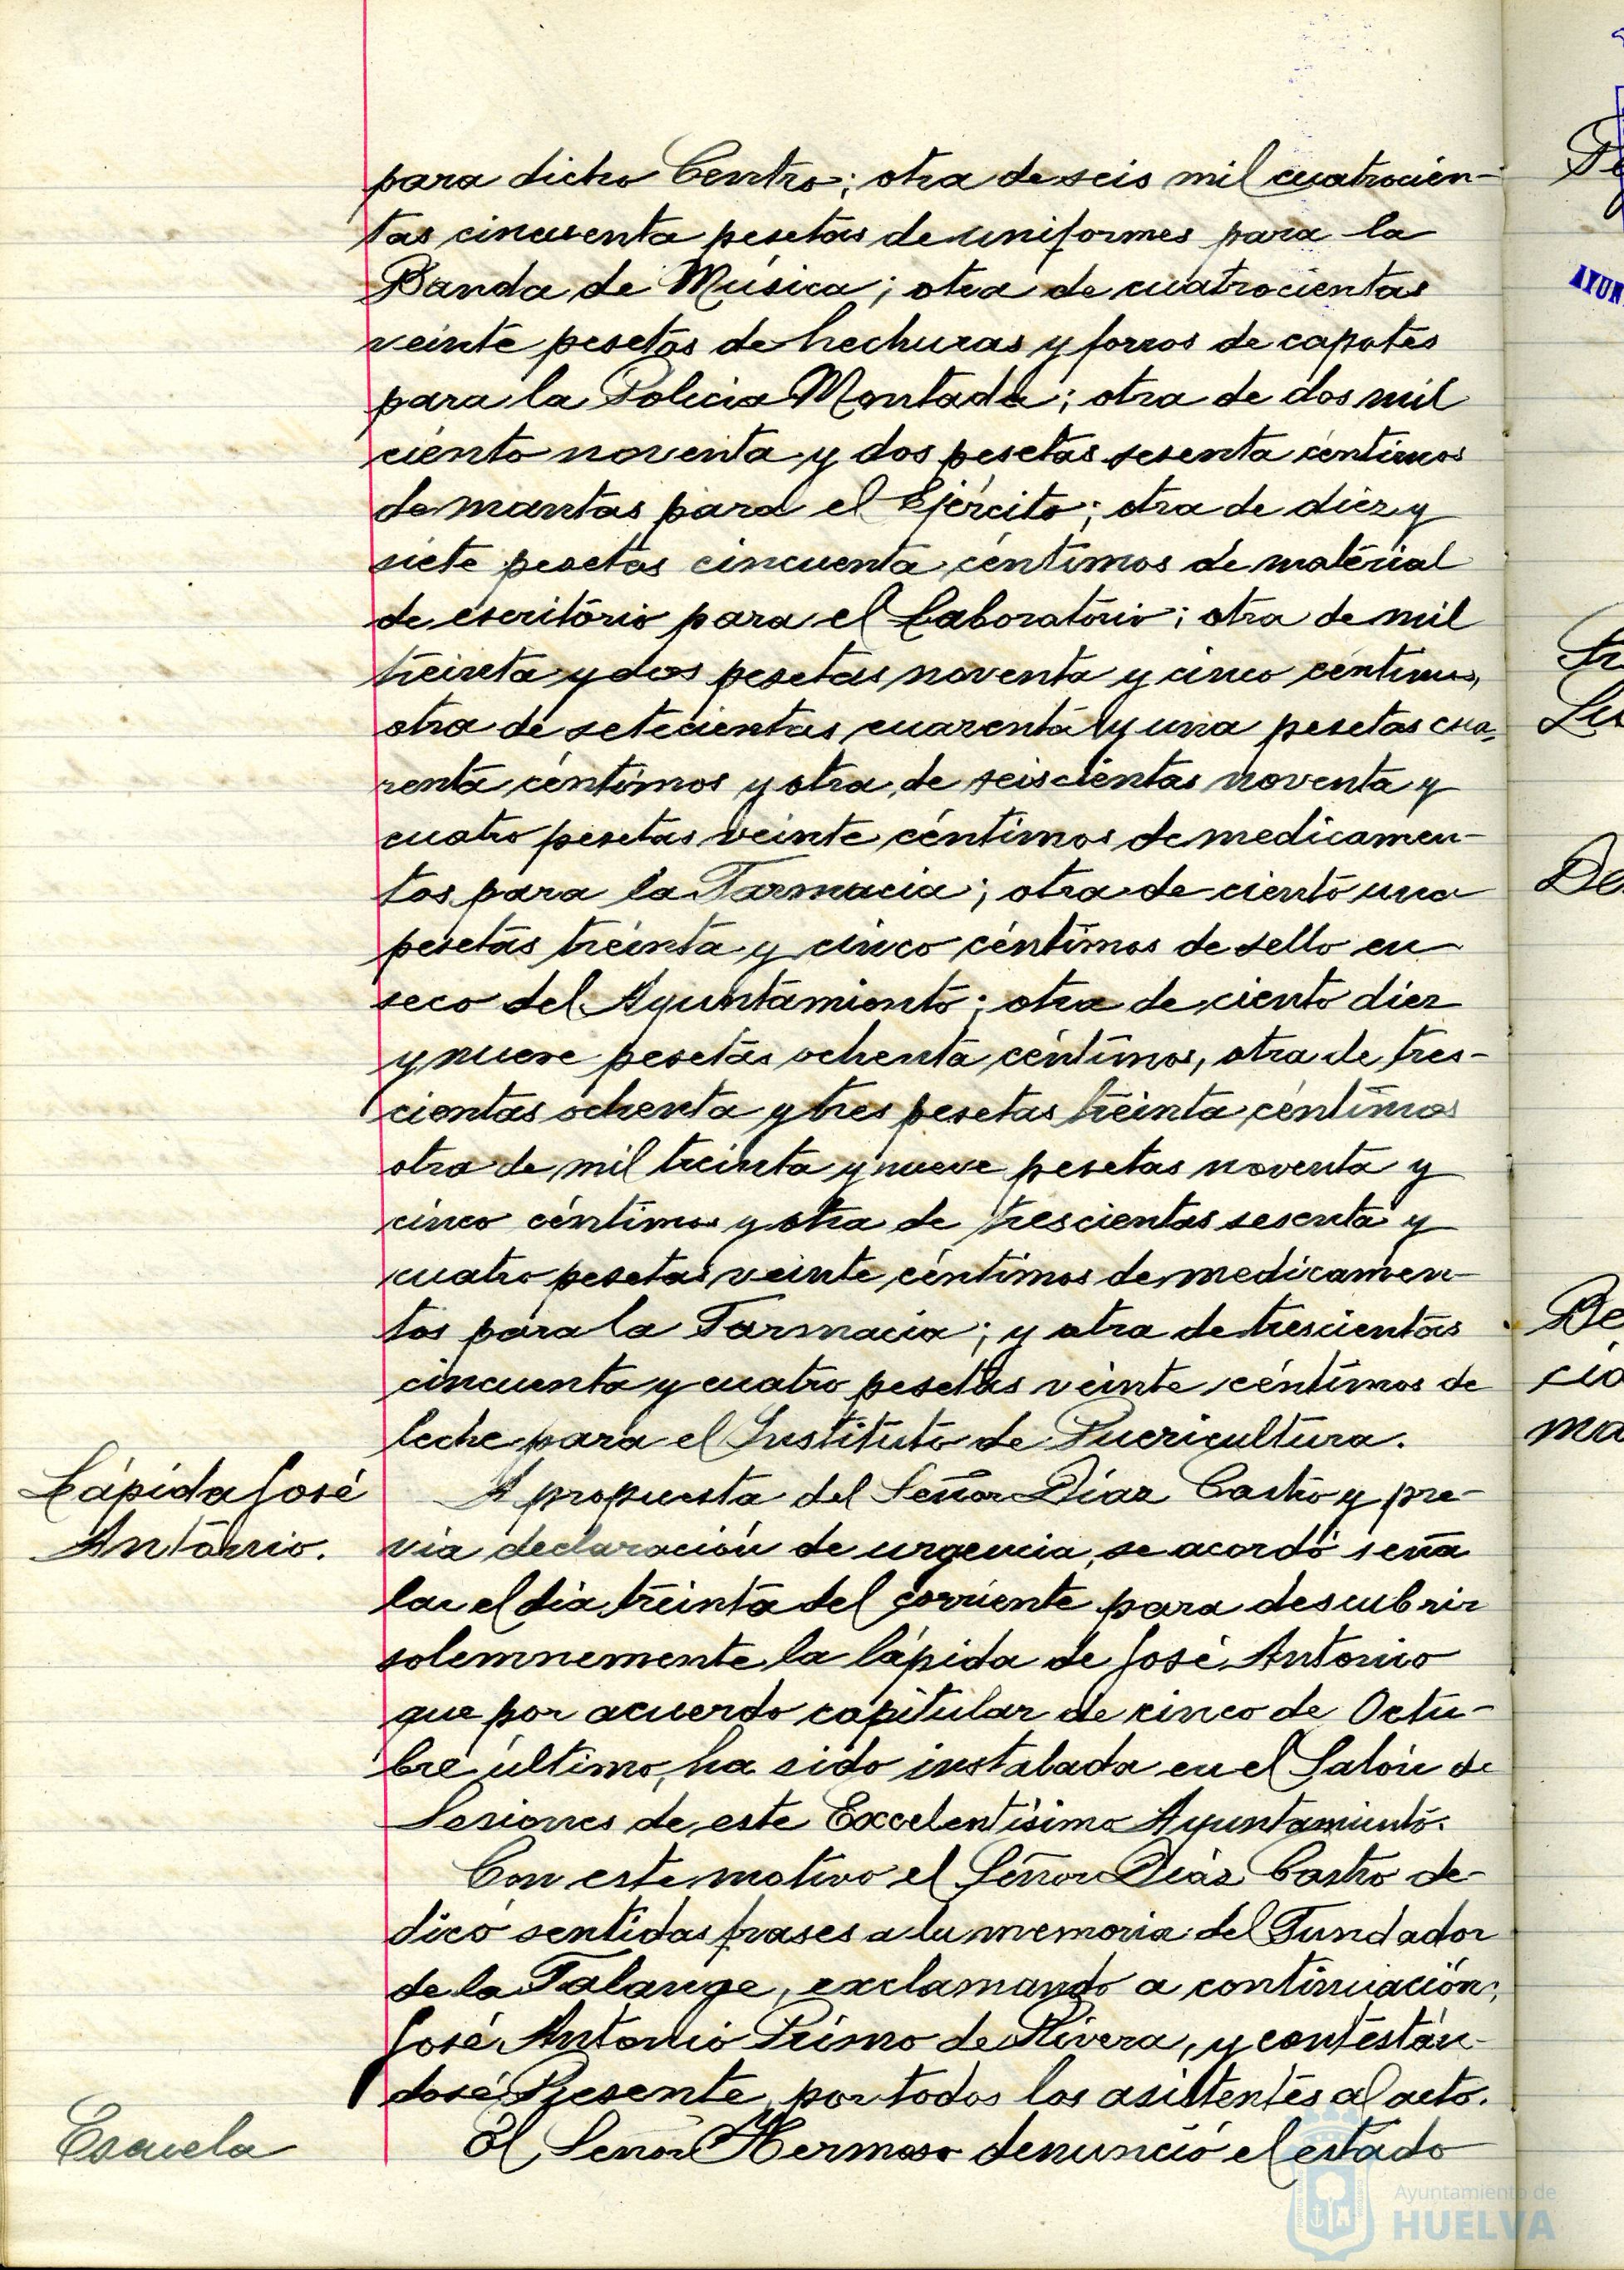 para dicho Centro; otra de seis mil cuatrocien-
tas cincuenta pesetas de uniformes para la
Banda de Música; otra de cuatrocientas
veinte pesetas de hechuras y forros de capotes
para la Policia Montada; otra de dos mil
ciento noventa y dos pesetas sesenta céntimos
de mantas para el Ejército; otra de diez y
siete pesetas cincuenta céntimos de material
de escritorio para el Laboratorio; otra de mil
treinta y dos pesetas noventa y cinco céntimos,
otra de setecientas cuarenta y una pesetas cua-
renta céntimos y otra de seiscientas noventa y
cuatro pesetas veinte céntimos de medicamen-
tos para la Farmacia; otra de ciento una
pesetas treinta y cinco céntimos de sello en
seco del Ayuntamiento; otra de ciento diez
y nueve pesetas ochenta céntimos, otra de tres-
cientas ochenta y tres pesetas treinta céntimos
otra de mil treinta y nueve pesetas noventa y
cinco céntimos y otra de trescientas sesenta y
cuatro pesetas veinte céntimos de medicamen-
tos para la Farmacia; y otra de trescientas
cincuenta y cuatro pesetas veinte céntimos de
leche para el Instituto de Puericultura.
Lápida José
Antonio.
A propuesta del Señor Díaz Castro y pre-
via declaración de urgencia, se acordó seña
lar el día treinta del corriente para descubrir
solemnemente la lápida de José Antonio
que por acuerdo capitular de cinco de Octu-
bre último, ha sido instalada en el Salón de
Sesiones de este Excelentísimo Ayuntamiento.
Con este motivo el Señor Díaz Castro de-
dicó sentidas frases a la memoria del Fundador
de la Falange, exclamando a continuación,
José Antonio Primo de Rivera, y contestán-
dose: Presente, por todos los asistentes al acto.
Escuela
El Señor Hermoso denunció el estado
Ayuntamiento de
HUELVA
AYUN
De
De
cio
ma